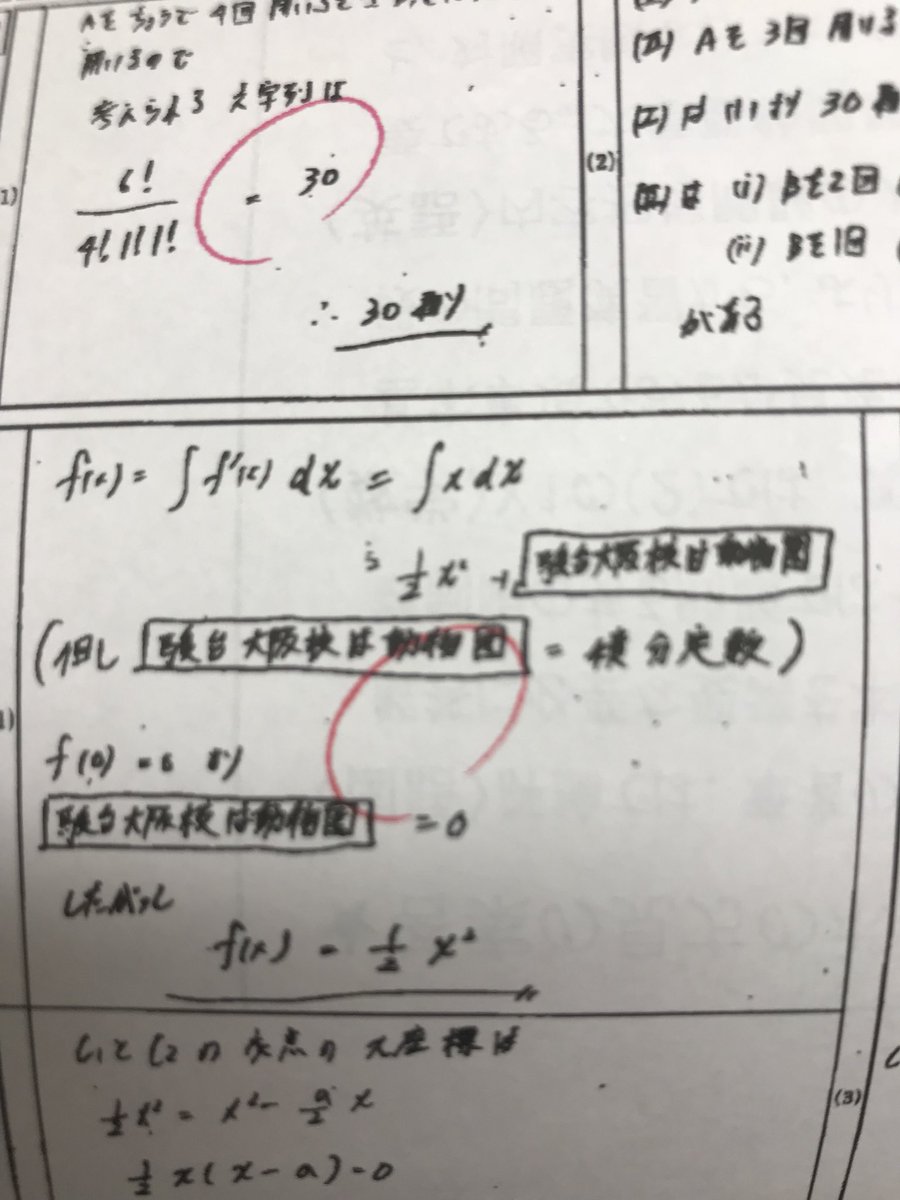 Aを
4回
用いるので
考えられる文字列は
1)
6!/4!1!1! = 30
∴ 30通り
(2)
(II) Aを3回用いる
(I)は(1)より 30通
(II)は (i) Bを2回
(ii) Bを1回
がある
f(x) = ∫f'(x) dx = ∫x dx
1/2 x² + 駿台大阪校は動物園
(但し 駿台大阪校は動物園 = 積分定数)
1)
f(0) = 0 より
駿台大阪校は動物園 = 0
したがって
f(x) = 1/2 x²
C₁とC₂の交点のx座標は
1/2 x² = x² - a/2 x
(3)
1/2 x(x-a)=0